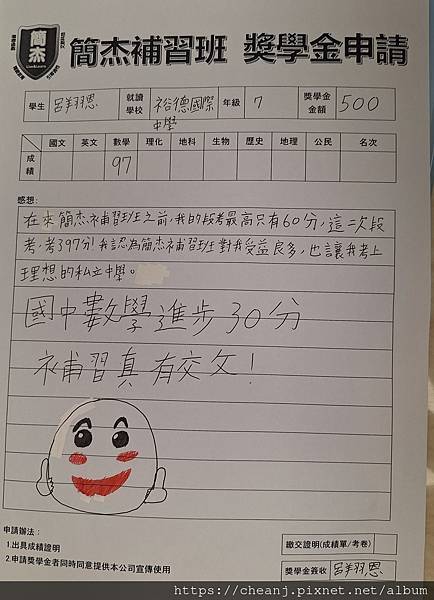 簡杰
簡杰補習班 獎學金申請
學生 呂翔恩 就讀學校 裕德國際中學 年級 7 獎學金金額 500
國文 英文 數學 理化 地科 生物 歷史 地理 公民 名次
成績 97
感想:
在來簡杰補習班之前,我的段考最高只有60分,這一次段
考,考了97分!我認為簡杰補習班對我受益良多,也讓我考上
理想的私立中學。
國中數學進步30分
補習真有效!
申請辦法:
1.出具成績證明
2.申請獎學金者同時同意提供本公司宣傳使用
繳交證明(成績單/考卷)
獎學金簽收 呂翔恩
https://cheanj.pixnet.net/album